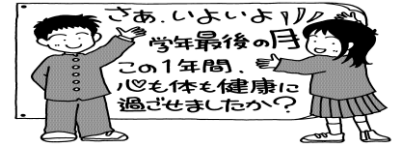 さあ、いよいよ
学年最後の月
この1年間、
心も体も健康に
過ごせましたか？